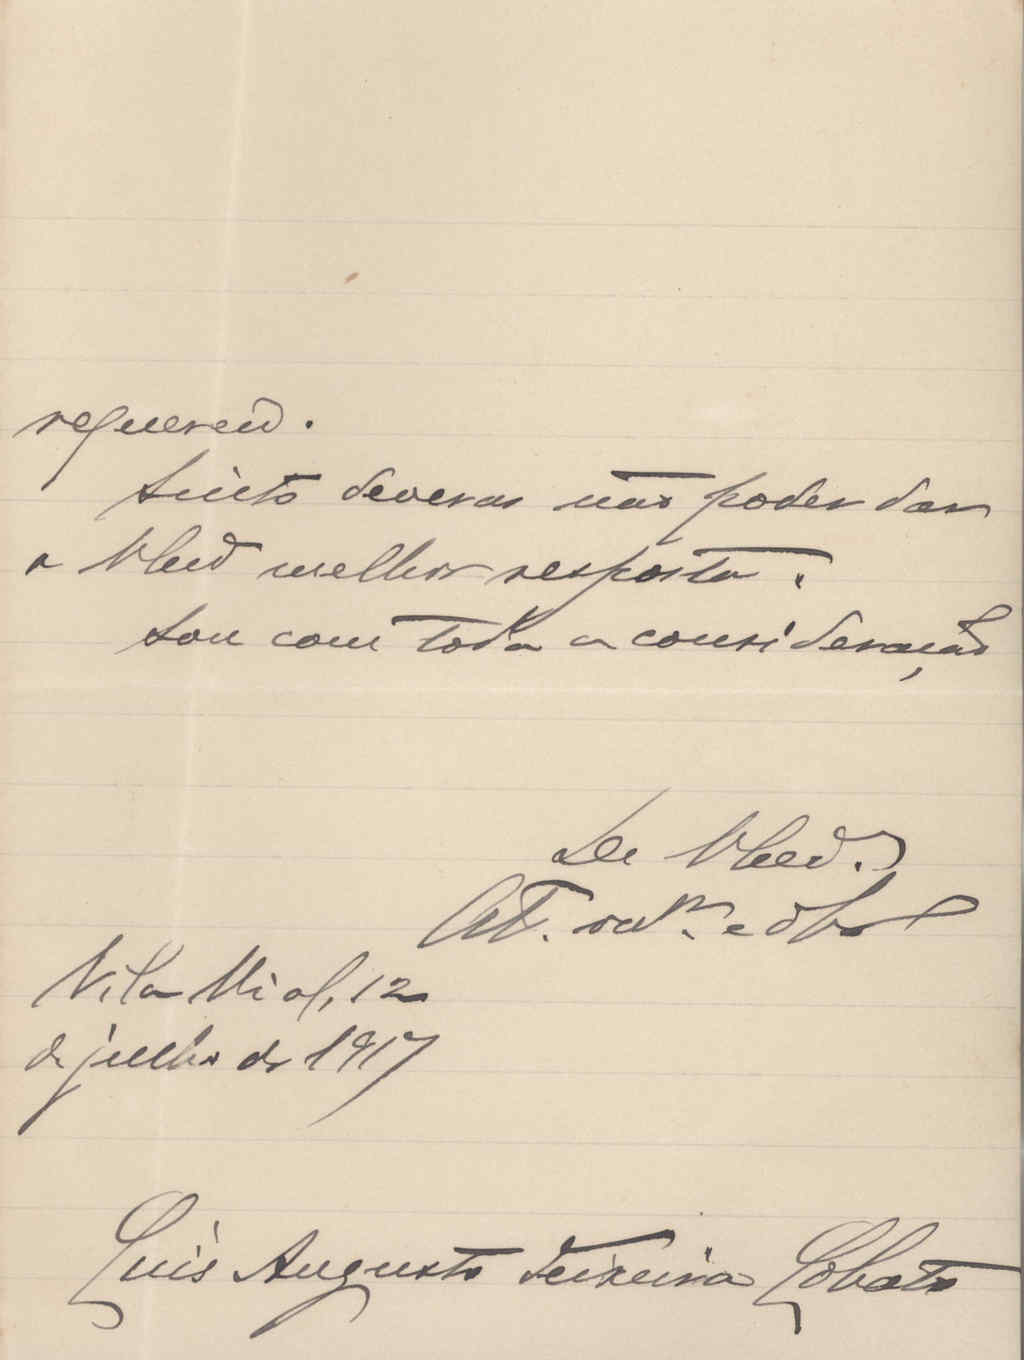 requereu.
Sinto deveras não poder dar
a V Ex.ª melhor resposta.
Sou com toda a consideração
De V Ex.ª
At. ven.or e obr
Vila Viçosa, 12
de julho de 1917
Luis Augusto Teixeira Lobato